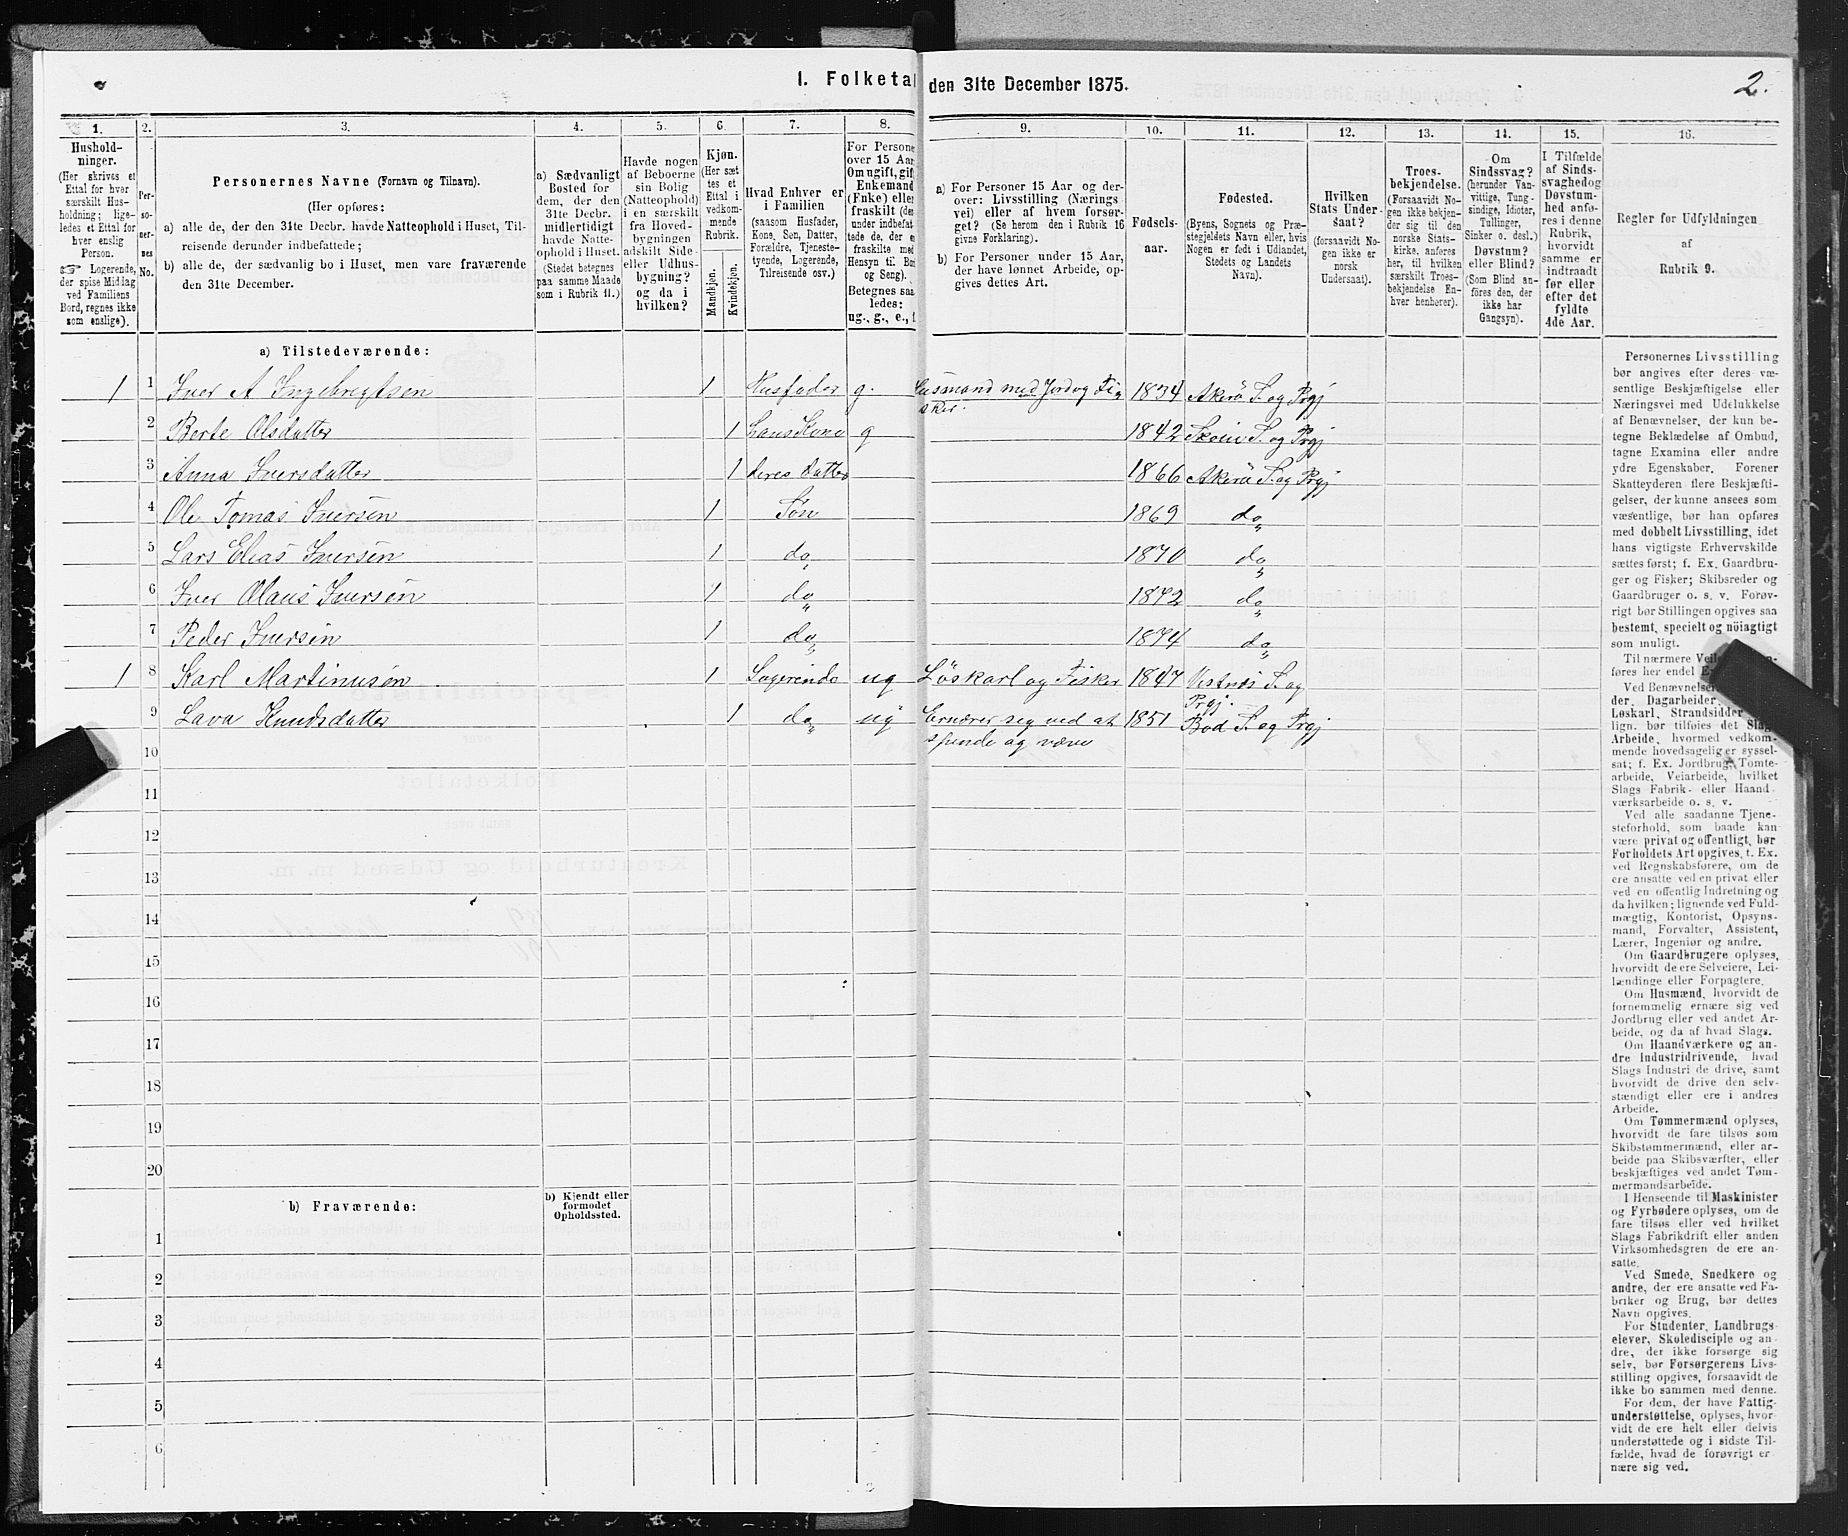 1. Folketal den 31te December 1875.
2.
1. 2. 3. 4. 5. 6. 7. 8. 9. 10. 11. 12. 13. 14. 15. 16.
Husholdninger.
(Her skrives et
Ettal for hver
særskilt Hus-
holdning; lige-
ledes et Ettal for
hver enslig
Person.
☞ Logerende,
der spise Middag
ved Familiens
Bord, regnes ikke
som enslige).
Per-
so-
ner-
nes
No.
Personernes Navne (Fornavn og Tilnavn).
(Her opføres:
a) alle de, der den 31te Decbr. havde Natteophold i Huset, Til-
reisende derunder indbefattede;
b) alle de, der sædvanlig bo i Huset, men vare fraværende
den 31te December.
a) Sædvanligt
Bosted for
dem, der den
31te Decbr.
midlertidigt
havde Natte-
ophold i Huset.
(Stedet betegnes
paa samme Maade
som i Rubrik 11.)
Havde nogen
af Beboerne
sin Bolig
(Natteophold)
i en særskilt
fra Hoved-
bygningen
adskilt Side-
eller Udhus-
bygning?
og da i
hvilken?
Kjøn.
(Her sæt-
tes et
Ettal i
vedkom-
mende
Rubrik.
Mandkjøn.
Kvindekjøn.
Hvad Enhver er
i Familien
(saasom Husfader,
Kone, Søn, Datter,
Forældre, Tjeneste-
tyende, Logerende,
Tilreisende osv.)
For Persone
over 15 Aar
Om ugift, gift
Enkemand
(Enke) eller
fraskilt (de
under indbefat
tede de, der e
fraskilte med
Hensyn til Bo
og Seng).
Betegnes saa
ledes:
ug., g., e., f
a) For Personer 15 Aar og der-
over: Livsstilling (Nærings
vei) eller af hvem forsør-
get? (Se herom den i Rubrik 16
givne Forklaring).
b) For Personer under 15 Aar,
der have lønnet Arbeide, op-
gives dettes Art.
Fødsels-
aar.
Fødested.
(Byens, Sognets og Præ-
stegjeldets Navn eller, hvis
Nogen er født i Udlandet,
Stedets og Landets
Navn).
Hvilken
Stats Under-
saat?
(forsaavidt No-
gen ikke er
norsk
Undersaat).
Troes-
bekjendelse.
(Forsaavidt No-
gen ikke bekjen-
der sig til den
norske Stats-
kirke, anføres
her, til hvilken
særskilt Troes-
bekjendelse En-
hver henhører).
Om
Sindssvag?
(herunder Van-
vittige, Tung-
sindige, Idioter,
Tullinger,
Sinker o. desl.)
Døvstum?
eller Blind?
(Som Blind an-
føres den, der
ikke har
Gangsyn).
I Tilfælde
af Sinds-
svaghed og
Døvstum-
hed anfø-
res i denne
Rubrik,
hvorvidt
samme er
indtraadt
før eller
efter det
fyldte
4de Aar.
Regler for Udfyldningen
af
Rubrik 9.
a) Tilstedeværende:
1 1 Iver A Ingebrigtsen 1 Husfader g. Husmand med Jord og Fi- 1834 Akerø S. og Prgj
sker.
2 Berte Olsdatter 1 hans Kone g 1842 S. og Prgj
3 Anna Iversdatter 1 deres datter 1866 Akerø S. og Prgj
4 Ole Tomas Iversen 1 Søn 1869 do
5 Lars Elias Iversen 1 do 1870 do
6 Iver Olaus Iversen 1 do 1872 do
7 Peder Iversen 1 do 1874 do
1 8 Karl Martinusøn 1 Logerende ug Løskarl og Fisker 1847 Vestnes S. og
Prgj.
9 Lava Knudsdatter 1 do ug Ernærer sig ved at 1851 Bod S. og Prgj
spinde og væve
10
11
12
13
14
15
16
17
18
19
20
b) Fraværende:
b) Kjendt eller
formodet
Opholdssted.
1
2
3
4
5
6
Personernes Livsstilling
bør angives efter deres væ-
sentlige Beskjæftigelse eller
Næringsvei med Udelukkelse
af Benævnelser, der kun be-
tegne Beklædelse af Ombud,
tagne Examina eller andre
ydre Egenskaber. Forener
Skatteyderen flere Beskjæfti-
gelser, der kunne ansees som
væsentlige, bør han opføres
med dobbelt Livsstilling, idet
hans vigtigste Erhvervskilde
sættes først; f. Ex. Gaardbru-
ger og Fisker; Skibsreder og
Gaardbruger o. s. v. Forøv-
rigt bør Stillingen opgives saa
bestemt, specielt og nöiagtigt
som muligt.
Til nærmere
føres her endel
Ved Benævnelser
der, Dagarbeider,
Løskarl, Strandsidder
lign. bør tilføies det Slags
Arbeide, hvormed vedkom-
mende hovedsagelig er syssel-
sat; f. Ex. Jordbrug, Tomte-
arbeide, Veiarbeide, hvilket
Slags Fabrik- eller Haand
værksarbeide o. s. v.
Ved alle saadanne Tjene-
steforhold, som baade kan
være privat og offentligt, bør
Forholdets Art opgives, t. Ex.
ved Regnskabsførere, om de
ere ansatte ved en privat eller
ved en offentlig Indretning og
da hvilken; lignende ved Fuld-
mægtig, Kontorist, Opsyns-
mand, Forvalter, Assistent,
Lærer, Ingeniør og andre.
Om Gaardbrugere oplyses,
hvorvidt de ere Selveiere, Lei-
lændinge eller Forpagtere.
Om Husmænd, hvorvidt de
fornemmelig ernære sig ved
Jordbrug eller ved andet Ar-
beide, og da af hvad Slags.
Om Haandværkere og an-
dre Industridrivende, hvad
Slags Industri de drive, samt
hvorvidt de drive den selv-
stændigt eller ere i andres
Arbeide.
Om Tømmermænd oplyses,
hvorvidt de fare tilsøs som
Skibstømmermænd, eller ar-
beide paa Skibsværfter, eller
beskjæftiges ved andet Tøm-
mermandsarbeide.
I Henseende til Maskinister
og Fyrbødere oplyses, om de
fare tilsøs eller ved hvilket
Slags Fabrikdrift eller anden
Virksomhedsgren de ere an-
satte.
Ved Smede, Snedkere og
andre, der ere ansatte ved Fa-
briker og Brug, bør dettes
Navn opgives.
For Studenter, Landbrugs-
elever, Skoledisciple og an-
dre, der ikke forsørge sig
selv, bør Forsørgerens Livs-
stilling opgives, forsaavidt de
ikke bo sammen med denne.
For dem, der have Fattig-
understøttelse, oplyses, hvor-
vidt de ere helt eller delvis
understøttede og i sidste Til-
fælde, hvad de forøvrigt er-
nære sig ved.